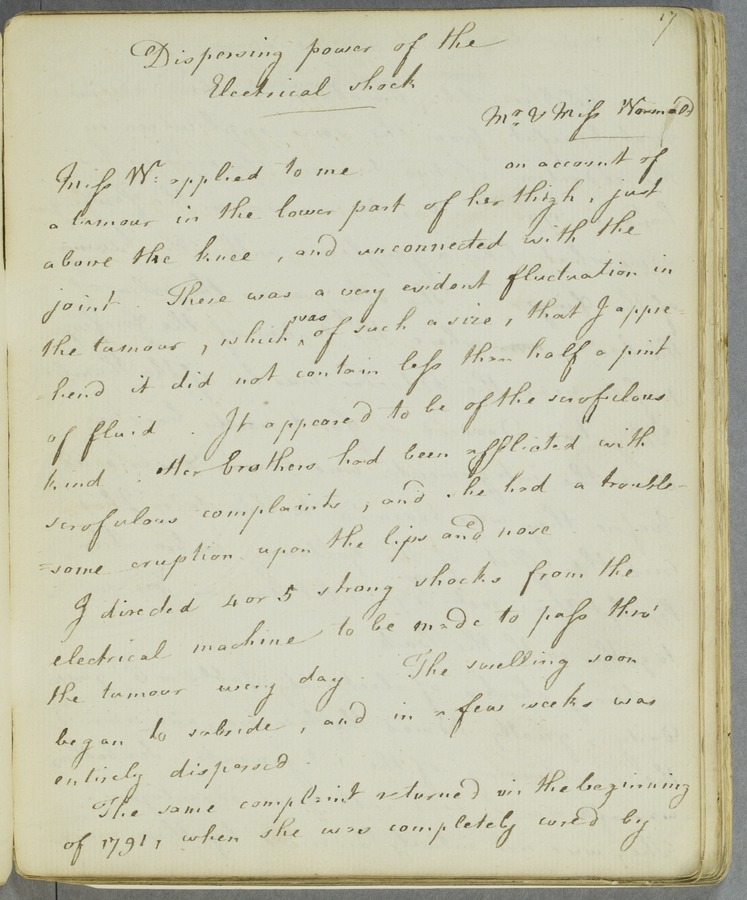 17
Dispersing power of the
Electrical shock
Mr. & Miss Wormald
Miss W. applied to me on account of
a tumour in the lower part of her thigh, just
above the knee, and unconnected with the
joint. There was a very evident fluctuation in
the tumour, which was of such a size, that I appre=
hend it did not contain less than half a pint
of fluid. It appeared to be of the scrofulous
kind. Her brothers had been afflicted with
scrofulous complaints, and she had a trouble=
=some eruption upon the lips and nose
I directed 4 or 5 strong shocks from the
electrical machine to be made to pass thro'
the tumour every day. The swelling soon
began to subside, and in a few weeks was
entirely dispersed.
The same complaint returned in the beginning
of 1791, when she was completely cured by